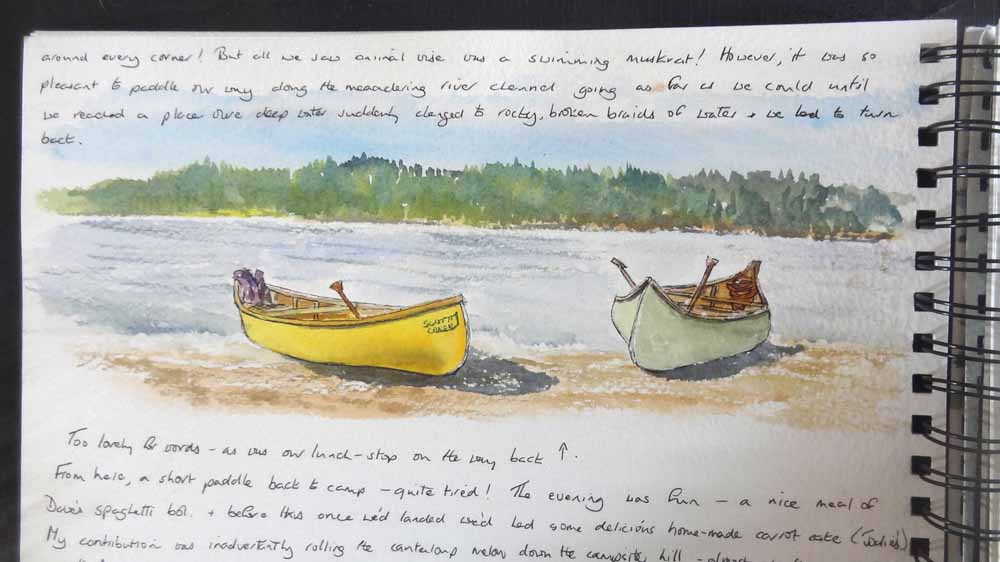 around every corner! But all we saw animal wise was a swimming muskrat! However, it was so
pleasant to paddle our way along the meandering river channel going as far as we could until
we reached a place where deep water suddenly changed to rocky, broken braids of water + we had to turn
back.
SCOTT
CANOE
Too lovely for words - as was our lunch-stop on the way back ↑.
From here, a short paddle back to camp - quite tired! The evening was fun - a nice meal of
Dave's spaghetti bol. + before this once we'd landed we'd had some delicious home-made carrot cake (Jodie's)
My contribution was inadvertently rolling the cantaloup melon down the campsite hill - almost